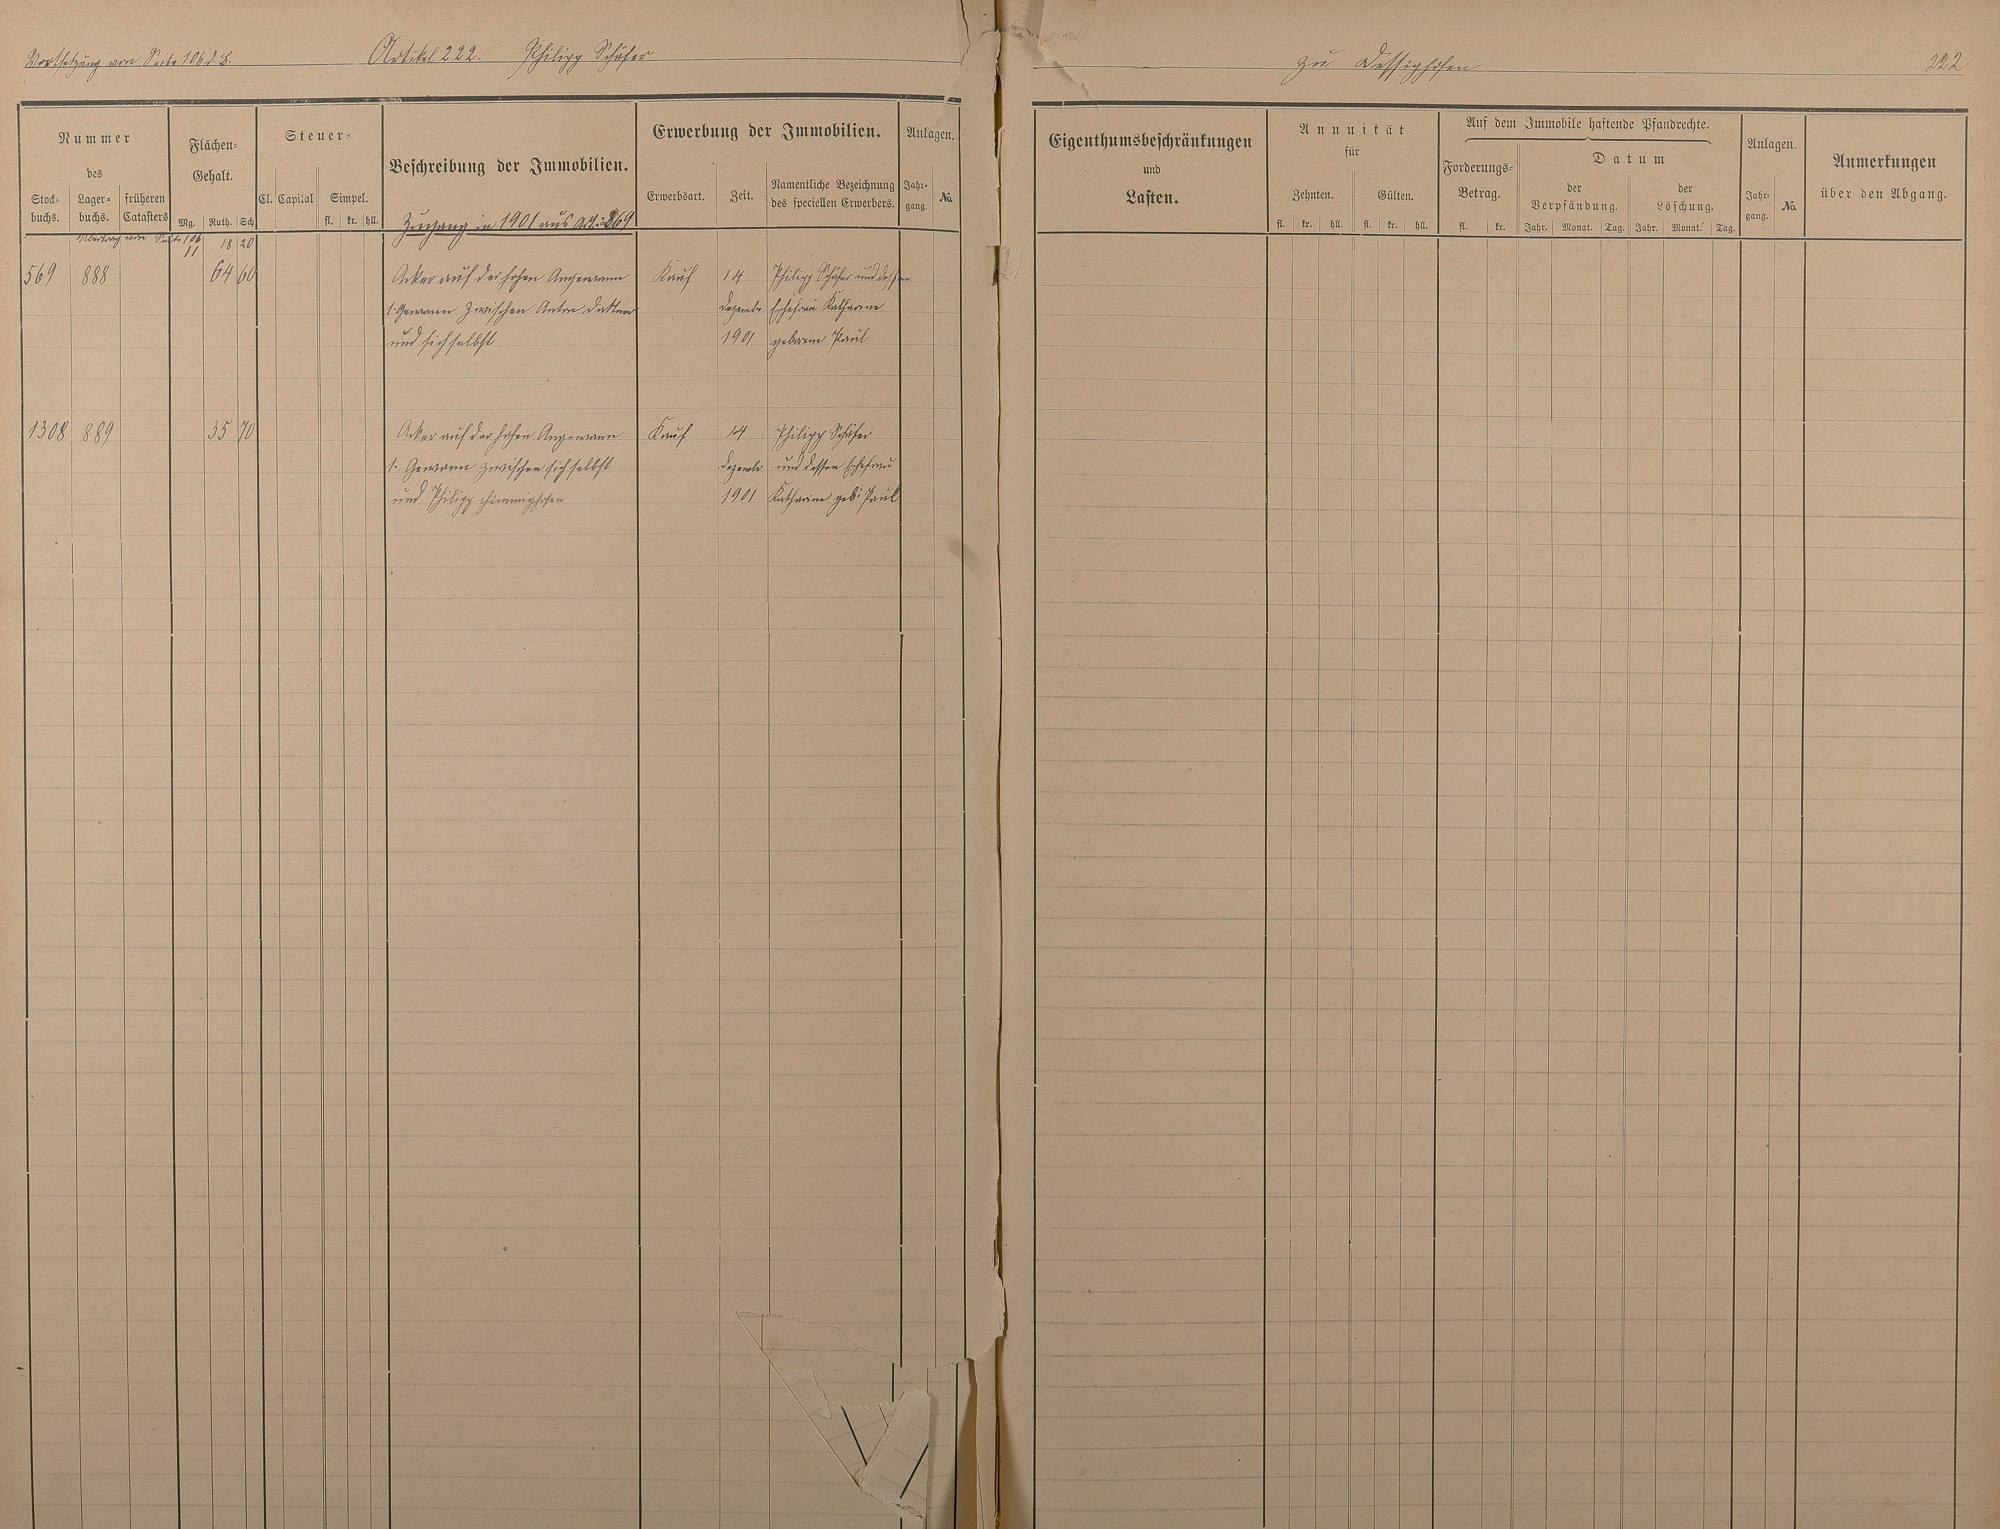 Fortsetzung von Seite 106 d. B. Artikel 222. Philipp Schäfer
zu Dessighofen 222
Nummer
des
Stock-
buchs.
Lager-
buchs.
früheren
Catasters
Flächen-
Gehalt.
Mg. Ruth. Sch
Steuer-
Cl. Capital Simpel.
fl. kr. hll.
Beschreibung der Immobilien.
Zugang in 1901 aus Art: 269
Erwerbung der Immobilien.
Erwerbsart. Zeit.
Namentliche Bezeichnung
des speciellen Erwerbers.
Anlagen.
Jahr-
gang.
No.
Übertrag von Seite 106
11 18 20
569 888 64 60 Acker auf der hohen Angewann Kauf 14 Philipp Schäfer und dessen
1. Gewann zwischen Anton Dattner Dezembr Ehefrau Katharine
und sich selbst 1901 geborene Paul
1308 889 35 70 Acker auf der hohen Angewann Kauf 14 Philipp Schäfer
1. Gewann zwischen sich selbst Dezembr und dessen Ehefrau
und Philipp Himmighofen 1901 Katharine geb: Paul
Eigenthumsbeschränkungen
und
Lasten.
Annuität
für
Zehnten. Gülten.
fl. kr. hll. fl. kr. hll.
Auf dem Immobile haftende Pfandrechte.
Forderungs-
Betrag.
fl. kr.
Datum
der
Verpfändung.
Jahr. Monat. Tag.
der
Löschung.
Jahr. Monat. Tag.
Anlagen.
Jahr-
gang.
No.
Anmerkungen
über den Abgang.